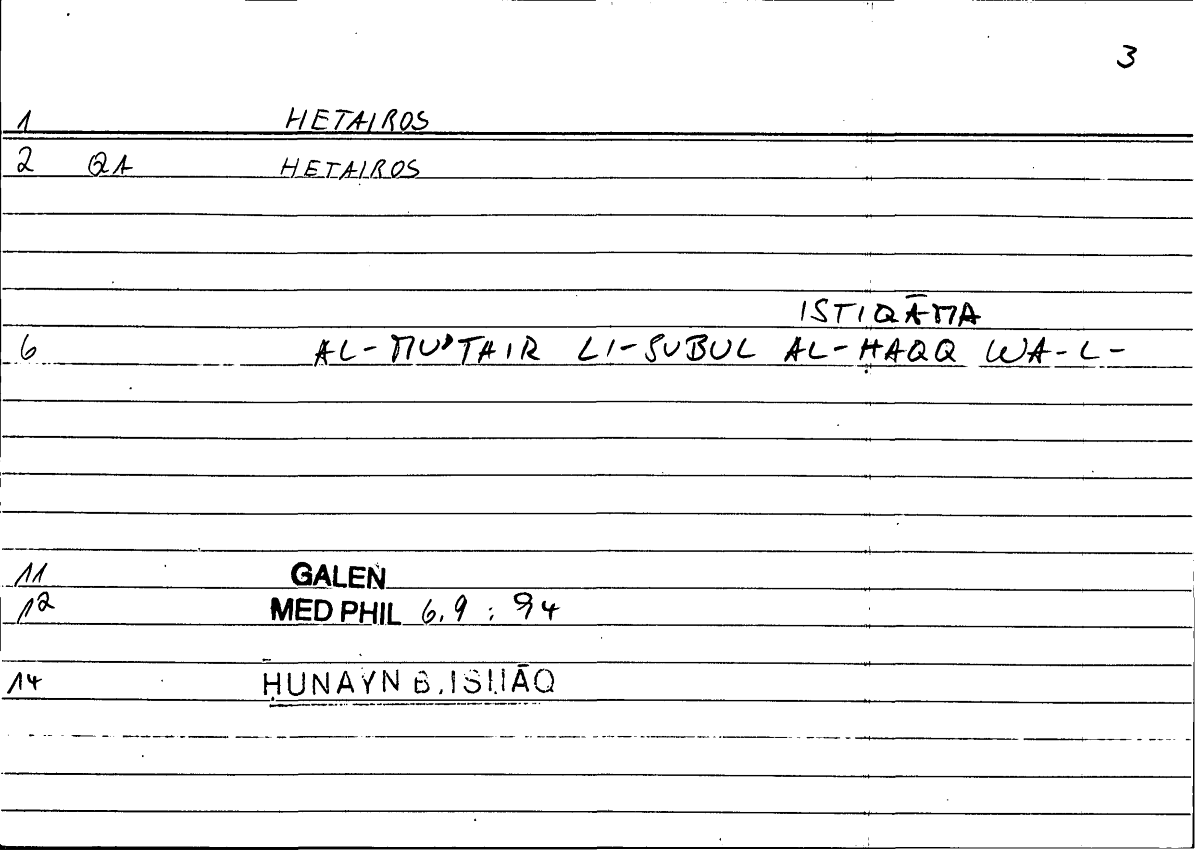 3
1 HETAIROS
2 QA HETAIROS
ISTIQĀMA
6 AL-MUʾTAIR LI-SUBUL AL-ḤAQQ WA-L-
11 GALEN
12 MED PHIL 6.9 : 94
14 ḤUNAYN B. ISḤĀQ